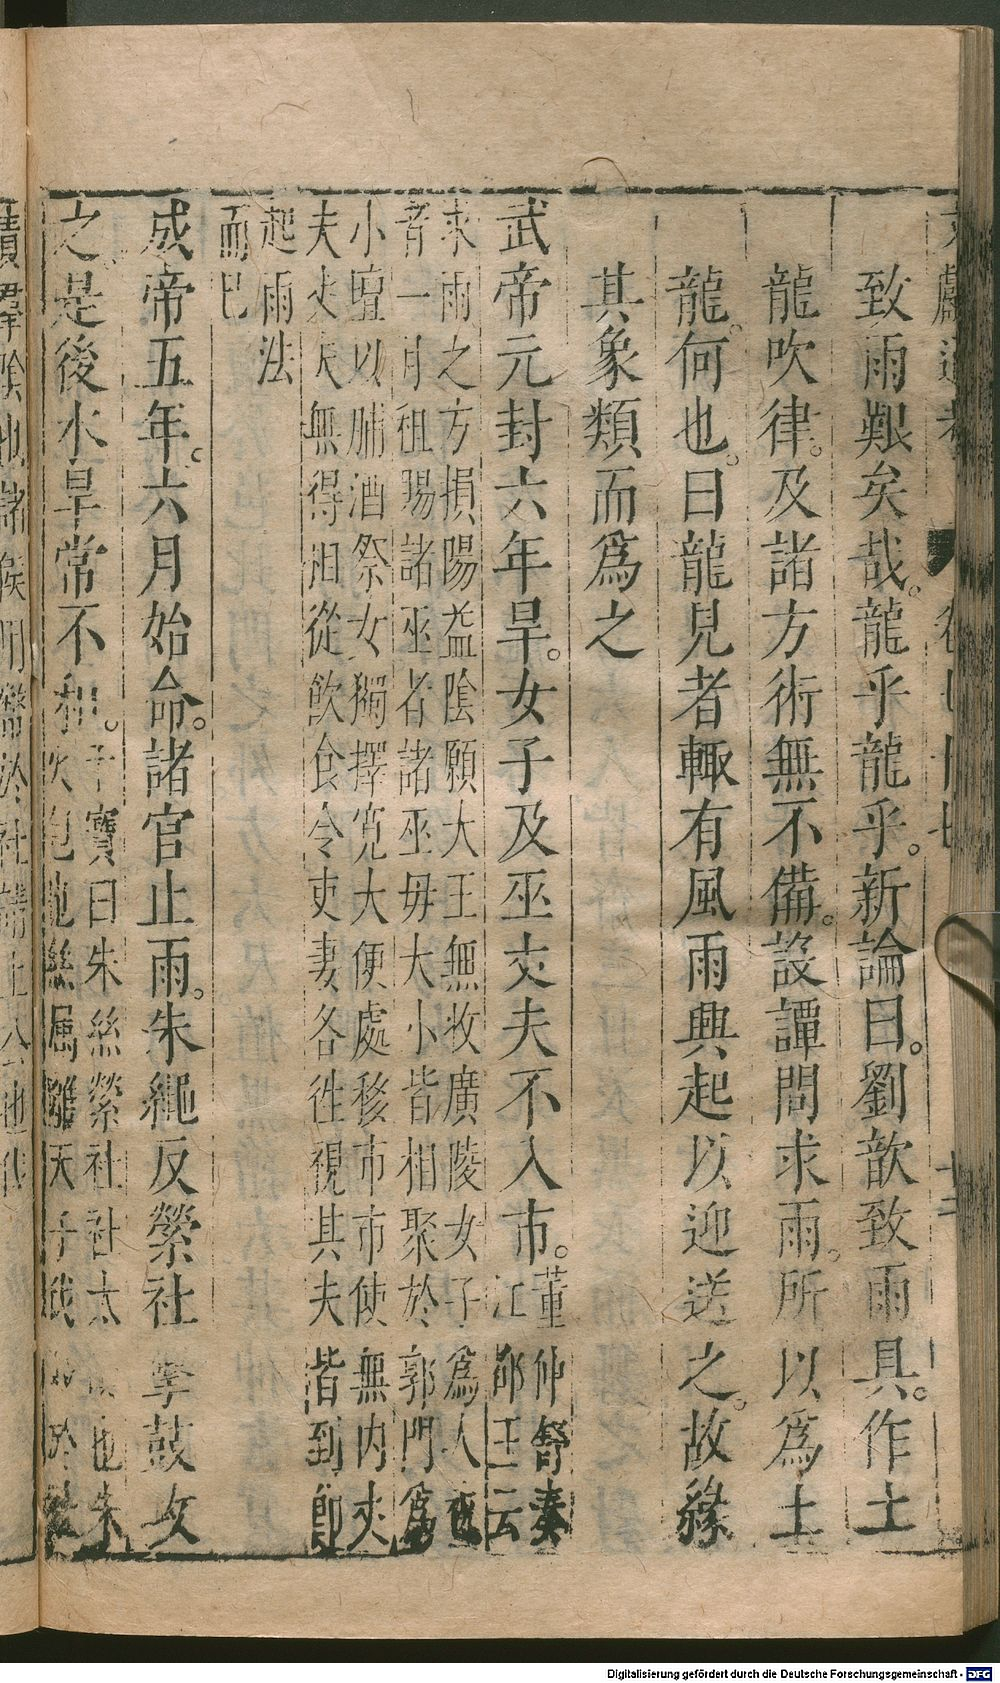 致雨艱矣哉。龍乎龍乎。新論曰。劉歆致雨具。作土
龍吹律。及諸方術無不備。設譚問求雨。所以爲土
龍。何也。曰龍見者輙有風雨興起以迎送之。故緣
其象類而爲之
武帝元封六年旱。女子及巫丈夫不入市。董仲舒奏
江都王云
求雨之方損陽益陰願大王無收廣陵女子爲人
者一月租賜諸巫者諸巫毋大小皆相聚於郭門爲
小壇以脯酒祭女獨擇寬大便處移市市使無內丈
夫丈夫無得相從飲食令吏妻各徃視其夫皆到即
起雨法
而已
成帝五年。六月始命。諸官止雨。朱繩反縈社擊鼓攻
之是後水旱常不和。干寶曰朱絲縈社社太
也朱
天子
於社
Digitalisierung gefördert durch die Deutsche Forschungsgemeinschaft - DFG